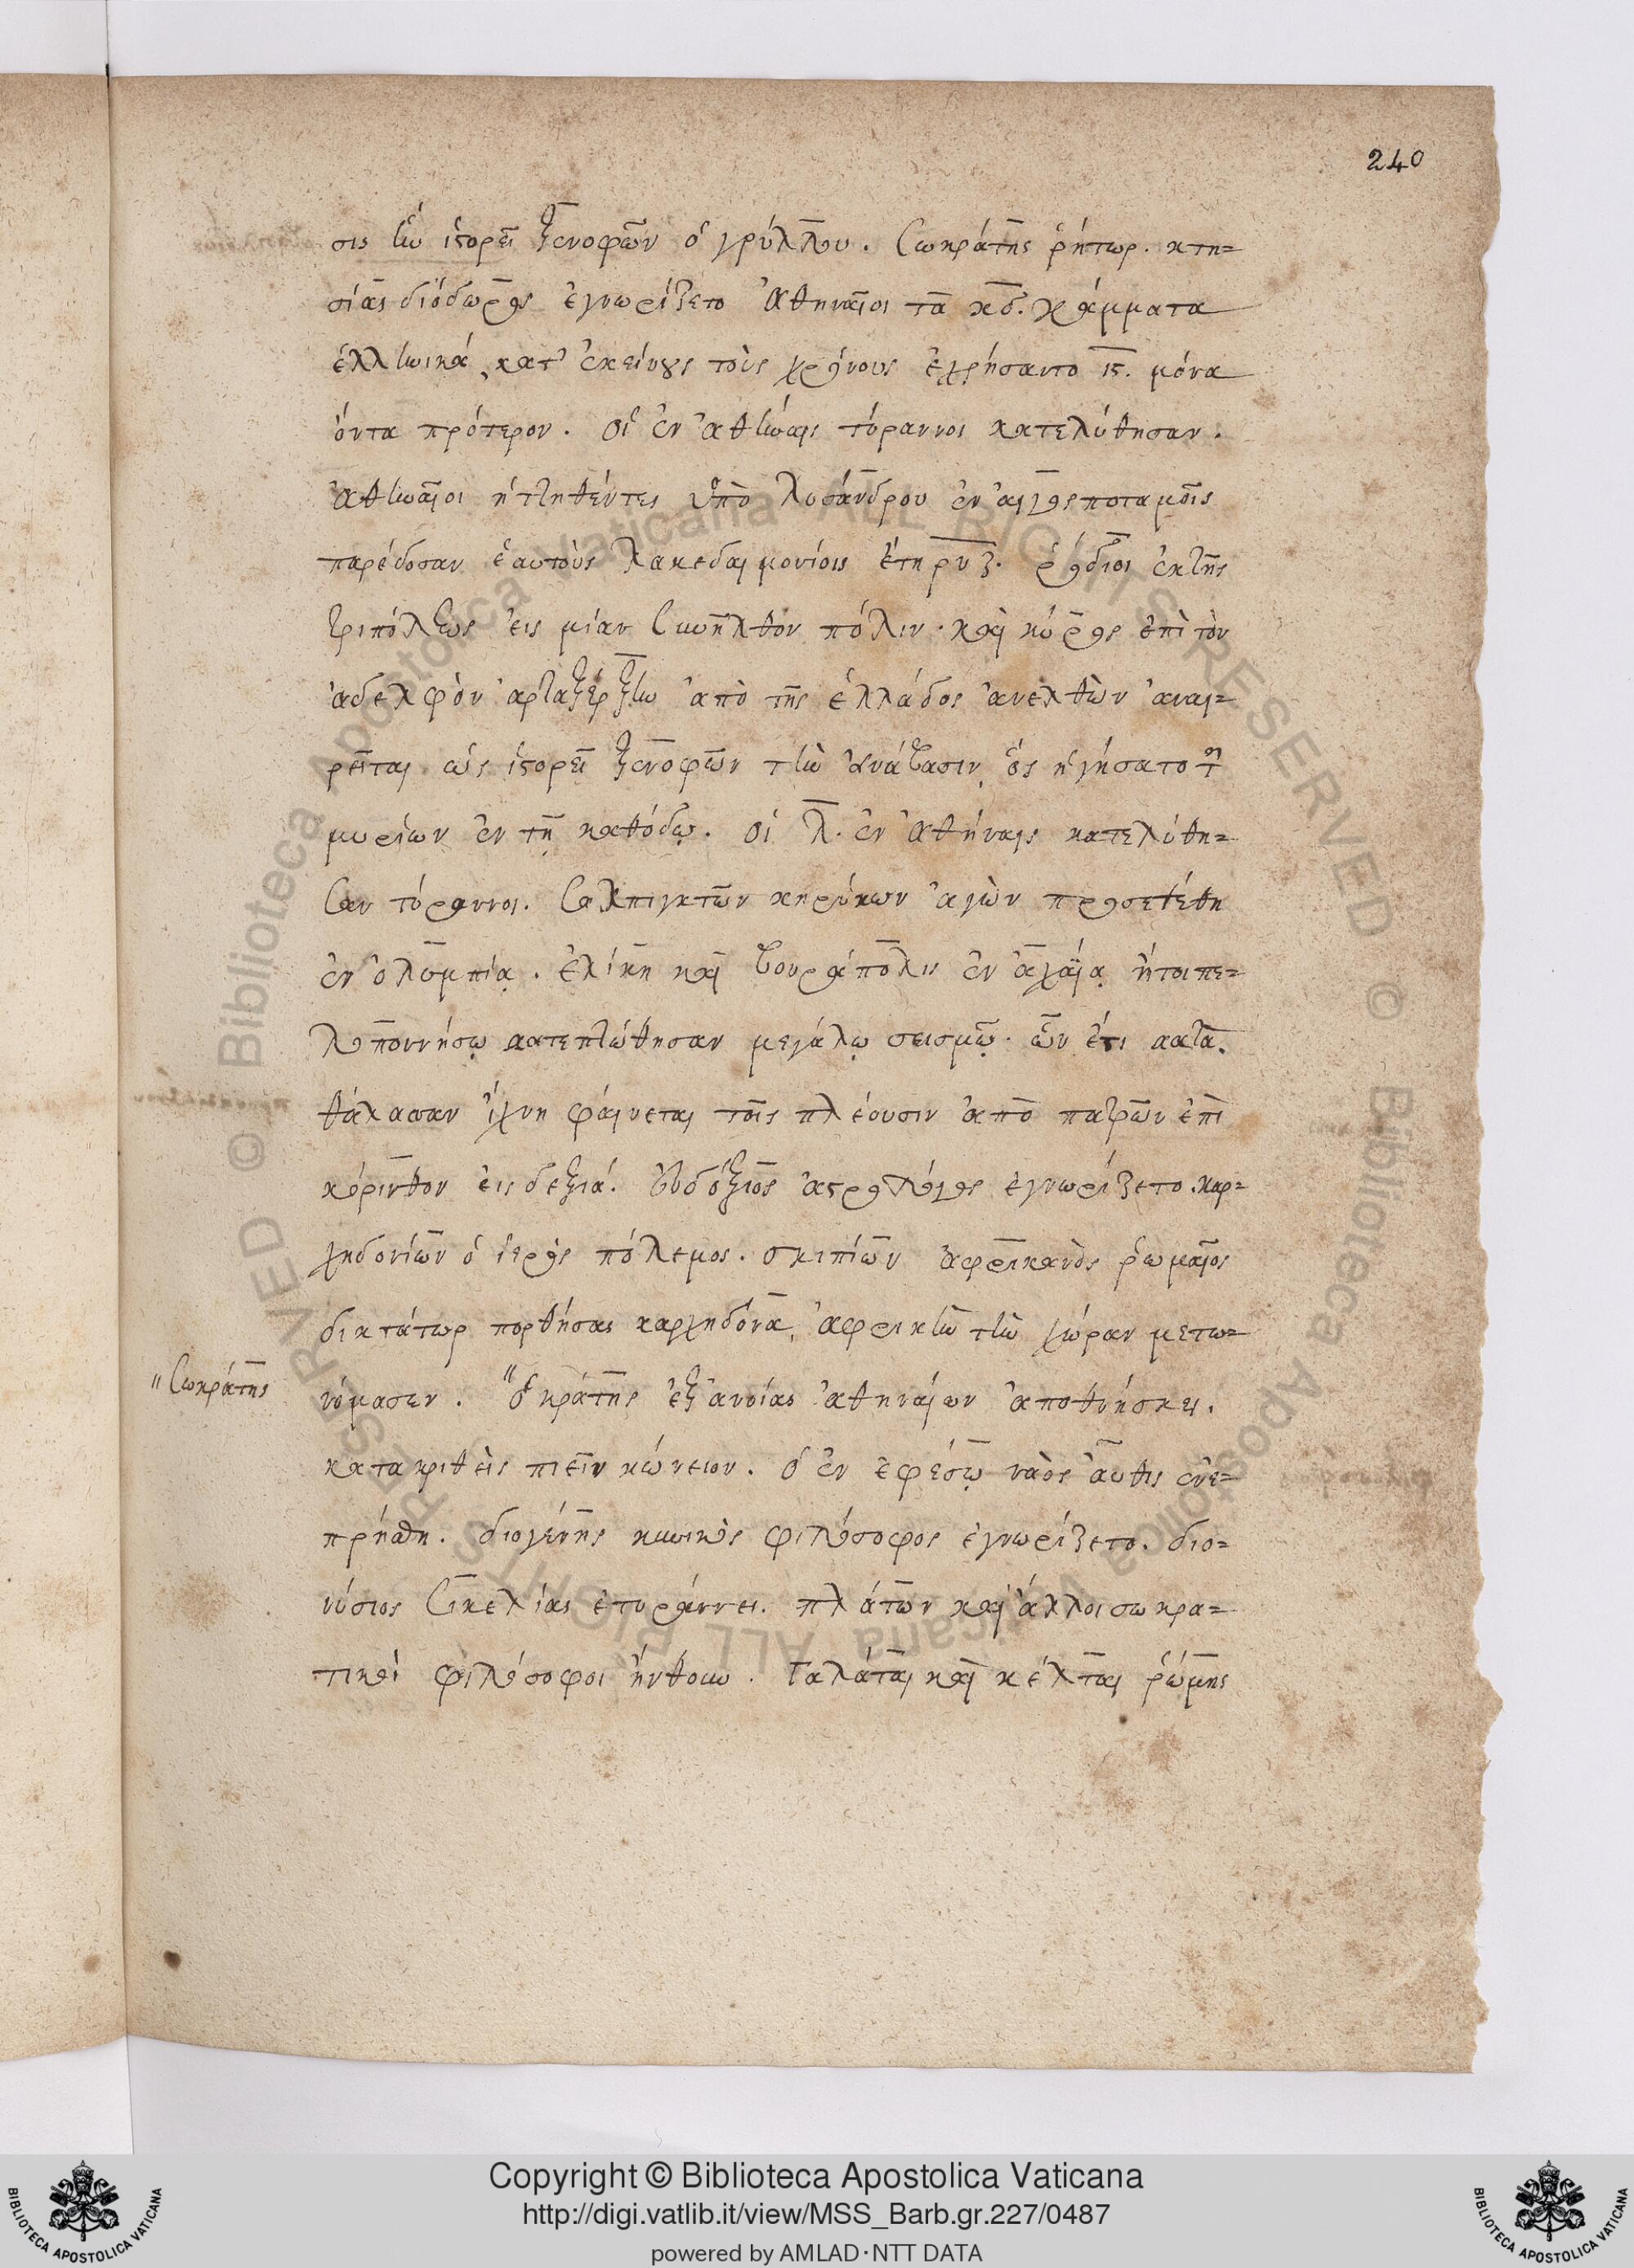 240
σις ἣν ἱστορεῖ Ξενοφῶν ὁ γρύλλου. Σωκράτης ῥήτωρ. κτη=
σίας διόδωρος ἐγνωρίζετο Ἀθηναῖοι τὰ κδ. γράμματα
ἑλληνικὰ, κατ' ἐκείνους τοὺς χρόνους ἐχρήσαντο ις. μόνα
ὄντα πρότερον. οἱ ἐν ἀθήναις τύραννοι κατελύθησαν.
ἀθηναῖοι ἡττηθέντες ὑπὸ λυσάνδρου ἐν αἰγὸς ποταμοῖς
παρέδοσαν ἑαυτοὺς λακεδαιμονίοις ἔτη ρνζ. ῥόδιοι ἐκ τῆς
τριπόλεως εἰς μίαν συνῆλθον πόλιν. καὶ κύρος ἐπὶ τὸν
ἀδελφὸν ἀρταξέρξην ἀπὸ τῆς ἑλλάδος ἀνελθὼν ἀναι=
ρεῖται ὡς ἱστορεῖ ξενοφῶν τὴν ἀνάβασιν, ὃς ἡγήσατο τῶν
μυρίων ἐν τῇ καθόδῳ. οἱ λ. ἐν Ἀθήναις κατελύθη=
σαν τύραννοι. Σαλπιγκτῶν κηρύκων ἀγὼν προσετέθη
ἐν ὀλυμπίᾳ. ἑλίκη καὶ βουρά πόλις ἐν ἀχαΐᾳ ἤτοι πε=
λοποννήσῳ κατεπόθησαν μεγάλῳ σεισμῷ. ὧν ἔτι κατὰ
θάλασσαν ἴχνη φαίνεται τοῖς πλέουσιν ἀπὸ πατρῶν ἐπὶ
κόρινθον εἰς δεξιά. Εὐδόξιος ἀστρολόγος ἐγνωρίζετο. καρ=
χηδονίων ὁ ἱερὸς πόλεμος. σκιπίων ἀφρικανὸς ῥωμαῖος
δικτάτωρ πορθήσας καρχηδόνα, ἀφρικὴν τὴν χώραν μετω=
νόμασεν. "ὁ κράτης ἐξ ἀνοίας ἀθηναίων ἀποθνήσκει.
" Σωκράτης
κατακριθεὶς πιεῖν κώνειον. ὁ ἐν ἐφέσῳ ναὸς αὖθις ἐνε=
πρήσθη. διογένης κυνικὸς φιλόσοφος ἐγνωρίζετο. διο=
νύσιος Σικελίας ἐτυράννει. πλάτων καὶ ἄλλοι σωκρα=
τικοὶ φιλόσοφοι ἤνθουν. Γαλάται καὶ κέλται ῥώμης
© Biblioteca Apostolica Vaticana ALL RIGHTS RESERVED © Biblioteca Apostolica Vaticana ALL RIGHTS RESERVED
BIBLIOTECA APOSTOLICA VATICANA
Copyright © Biblioteca Apostolica Vaticana
http://digi.vatlib.it/view/MSS_Barb.gr.227/0487
powered by AMLAD·NTT DATA
BIBLIOTECA APOSTOLICA VATICANA